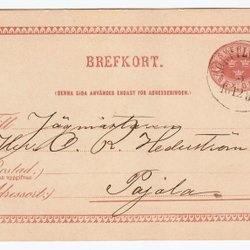 BREFKORT.
(DENNA SIDA ANVÄNDES ENDAST FÖR ADRESSERINGEN.)
Till Jägmästaren
Herr C. R. Hederström
(Bostad.)
Pajala.
(Adressort:)